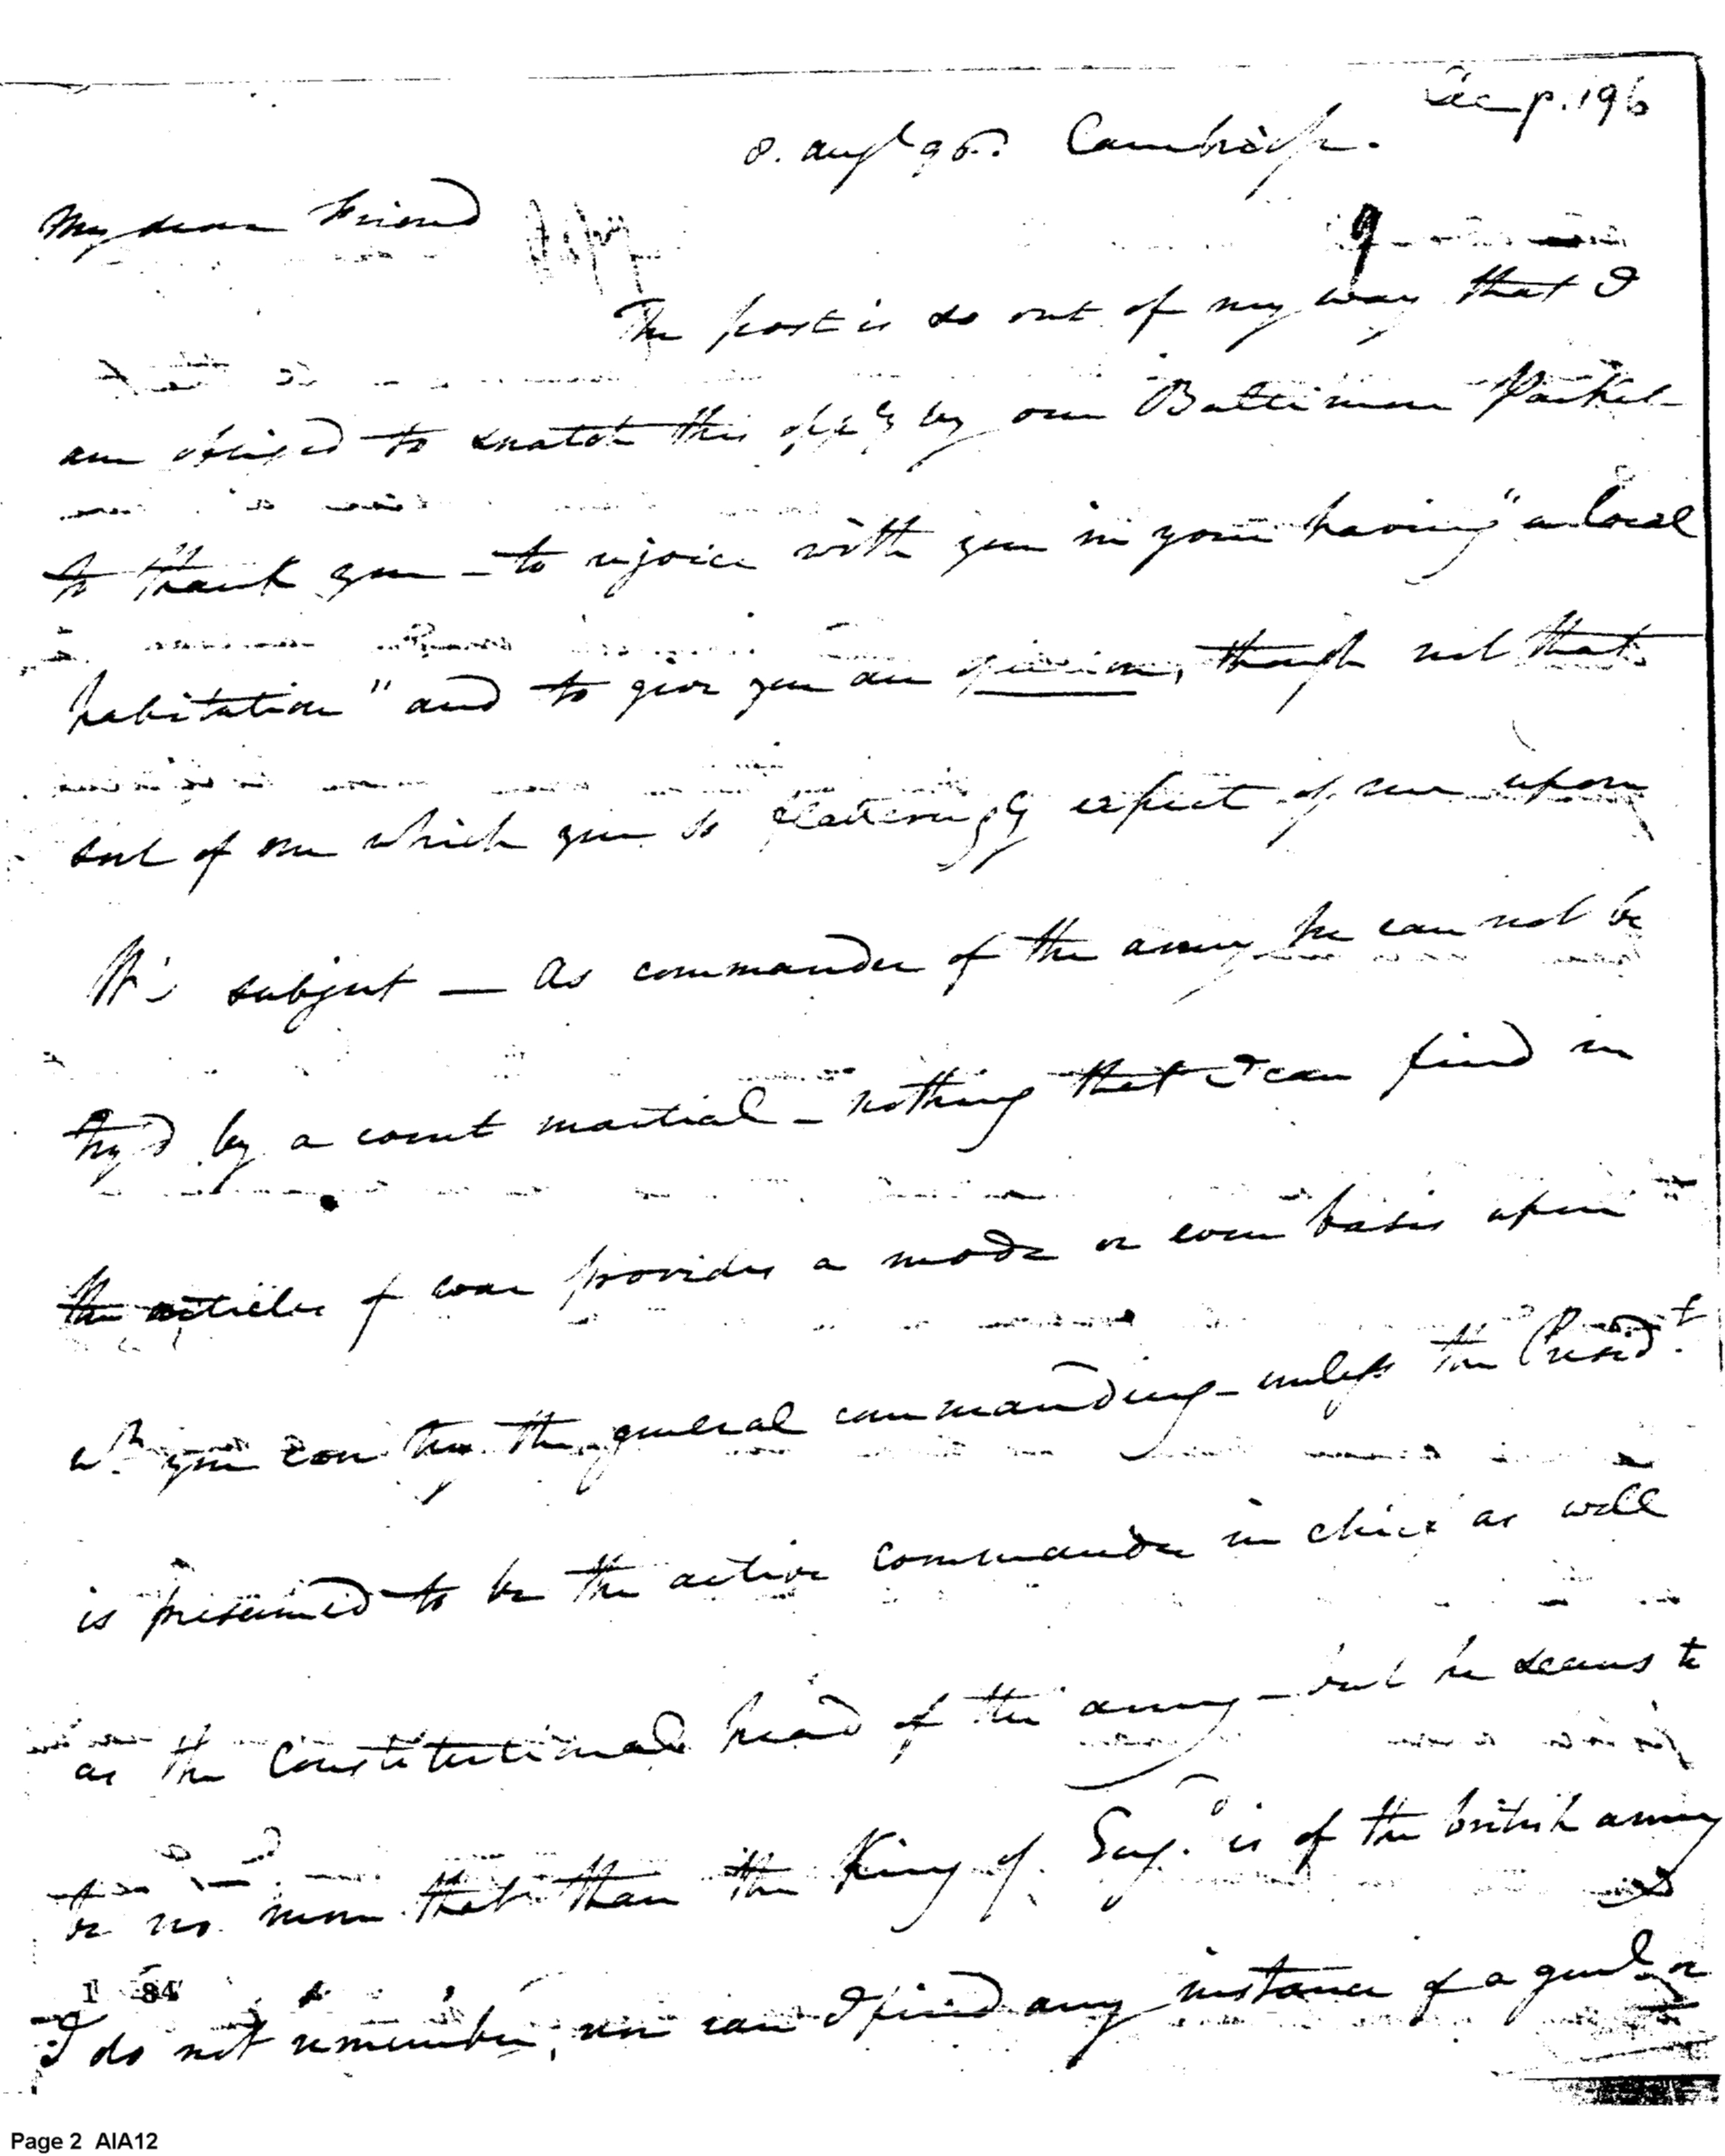 See p. 196
8. augt 96. Cambridge.
My dear Friend
9
The post is so out of my way that I
am obliged to snatch this oppy by our Baltimore Packet
to thank you - to rejoice with you in your having "a local
habitation" and to give you an opinion, though not that
sort of one which you so flatteringly expect of me upon
W's subject — As commander of the army he can not be
try'd by a court martial - nothing that I can find in
the articles of war provides a mode or even basis upon
wh you can try the general commanding - unless the Presidt.
is presumed to be the active commander in chief as well
as the Constitutional head of the army - but he seems to
be no more that than the King of Eng. is of the british army
1 84
I do not remember, nor can I find any instance of a genl or
Page 2 AIA12